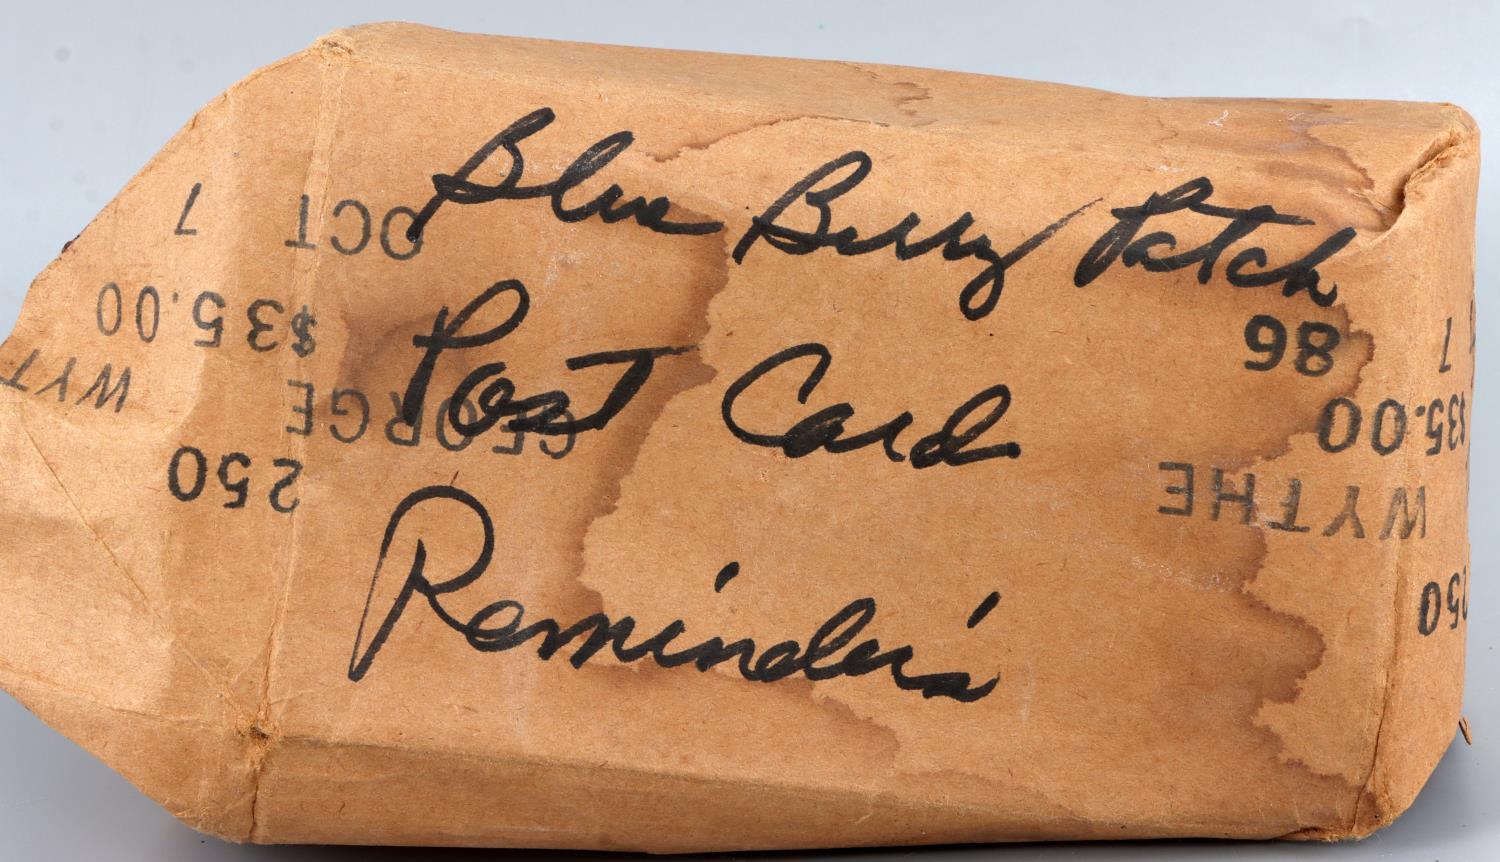 Blue Berry Patch
Post Card
Reminder's
250
GEORGE WYT
$35.00
OCT 7
250
WYTHE
$35.00
7
86